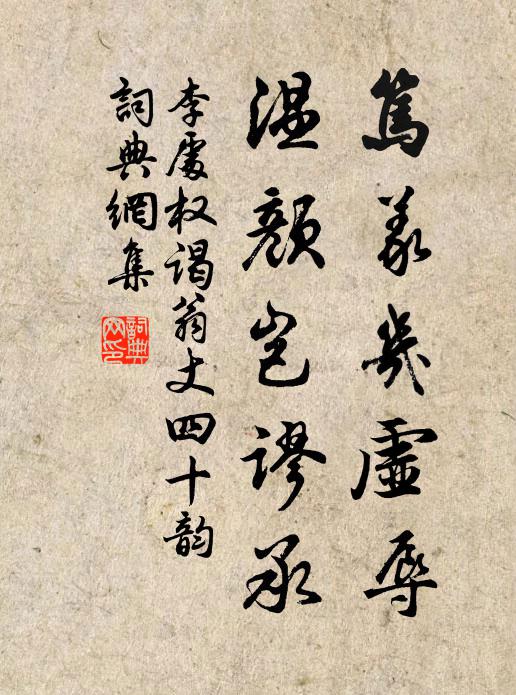 篤義幾虛辱
溫顏豈謬承
李處权謁翁丈四十韵
詞典網集
詞典網印